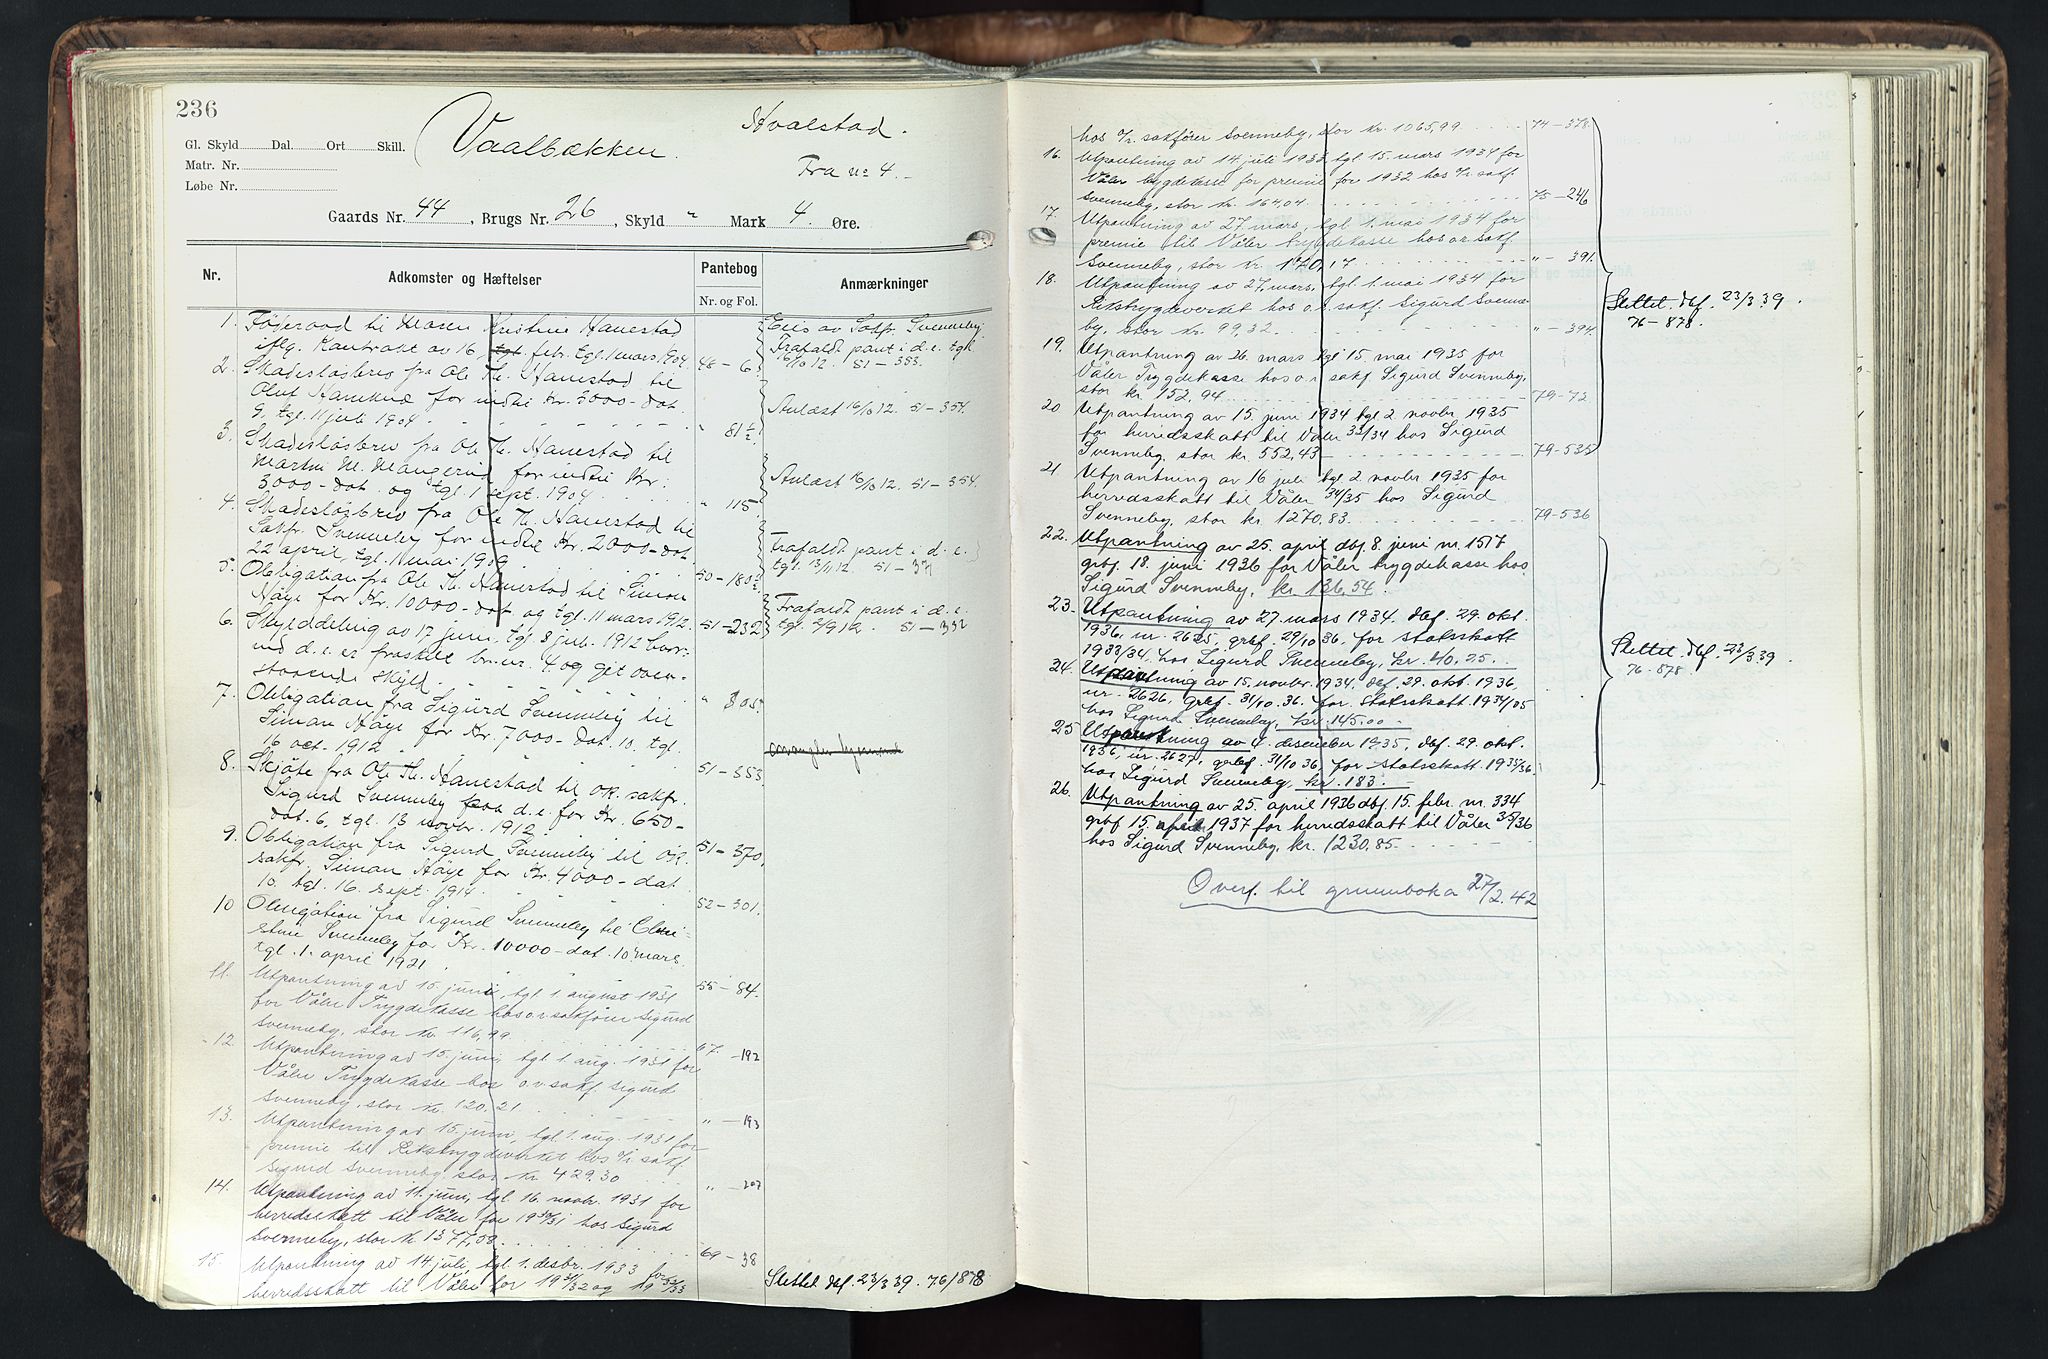 236
Hvalstad.
Gl. Skyld Dal. Ort Skill.
Vaalbækken.
Matr. Nr.
Fra no 4.
Løbe Nr.
Gaards Nr. 44, Brugs Nr. 26, Skyld " Mark 4. Øre.
Nr. Adkomster og Hæftelser Pantebog Anmærkninger
Nr. og Fol.
1. Føderaad til Maren Kristine Hanestad
iflg. Kontrakt av 16. tgl. febr. tgl. 1 mars 1904. 48 – 6.
Eies av Sakfr. Svenneby.
Frafaldt pant i d.e. tgl.
16/10 12. 51 – 353.
2. Skadesløsbrev fra Ole Th. Hanestad til
Oluf for indtil Kr. 3000 – dat.
9, tgl. 11 juli 1904 " 81 1/2.
Avlæst 16/10 12. 51 – 354.
3. Skadesløsbrev fra Ole Th. Hanestad til
Martin M. for indtil Kr.
3000 – dat. og tgl. 1 sept. 1904. " 115.
Avlæst 16/10 12. 51 – 354.
4. Skadesløsbrev fra Ole Th. Hanestad til
Sakfr. Svenneby for indtil Kr. 2000 – dat.
22 april, tgl. 11 mai 1909. 50 – 180
Frafaldt pant i d.e.
tgl. 13/11 12. 51 –
5. Obligation fra Ole Th. Hanestad til Simon
Høye for Kr. 10000 – dat og tgl. 11 mars 1912. 51 – 232
Frafaldt pant i d.e.
tgl. 2/9 12. 51 – 332
6. Skylddeling av 17 juni, tgl. 8 juli 1912 hvor-
ved d.e. er fraskilt br.nr. 4 og git oven-
staaende skyld. " 305.
7. Obligation fra Sigurd Svenneby til
Simon Høye for Kr. 7000 – dat. 10. tgl.
16 oct. 1912. 51 – 353.
8. Skjøte fra Ole Th. Hanestad til o.r. sakfr.
Sigurd Svenneby paa d.e. for Kr. 650 –
dat. 6, tgl. 13 novbr. 1912. 51 – 370.
9. Obligation fra Sigurd Svenneby til o.r.
sakfr. Simon Høye for Kr. 4000 – dat.
10. tgl. 16. sept. 1914. 52 – 301.
10 Obligation fra Sigurd Svenneby til Chri-
stine Svenneby for Kr. 10000 – dat. 10. mars.
tgl. 1. april 1921. 55 – 84.
11. Utpantning av 15. juni, tgl. 1 august 1931
for Våler Trygdekasse hos o.r. sakfører Sigurd
Svenneby, stor kr. 116,99 67. – 192
12. Utpantning av 15. juni, tgl. 1. aug. 1931 for
Våler Trygdekasse hos o.r. sakf. Sigurd
Svenneby, stor kr. 120.21 " – 193
13. Utpantning av 15. juni, tgl. 1. aug. 1931 for
premie til Rikstrygdeverket hos o/r. sakf.
Sigurd Svenneby stor kr 429.30 " – 207
14. Utpantning av 11. juni, tgl. 16. novbr. 1931 for
herredsskatt til Våler for 1930/31 hos Sigurd
Svenneby, stor kr. 1377,08 69 – 38
15. Utpantning av 14. juli, tgl. 1. desbr. 1933 for
herredsskatt til Våler for 1931/32 og 1932/33
Slettet dbf. 23/3 39. 76/878
hos o/r. sakfører Svenneby, stor kr. 1065,99 74 – 378.
16. Utpantning av 14. juli 1933 tgl. 15. mars 1934 for
Våler trygdekasse for premie for 1932 hos o/r. sakf.
Svenneby, stor kr. 164.04 75 – 246
17. Utpantning av 27 mars, tgl. 1. mai 1934 for
premie til Våler trygdekasse hos o.r. sakf.
Svenneby, stor kr. 140,17 " – 391.
18. Utpantning av 27. mars, tgl. 1. mai 1934 for
Rikstrygdeverket hos o.r. sakf. Sigurd Svenne-
by, stor kr. 99,32 " – 394.
Slettet dbf. 23/3 39.
76 – 878.
19. Utpantning av 26. mars tgl. 15. mai 1935 for
Våler Trygdekasse hos o.r. sakf. Sigurd Svenneby,
stor kr. 152,94 79 – 72
20 Utpantning av 15. juni 1934 tgl 2. novbr. 1935
for herredsskatt til Våler 33/34 hos Sigurd
Svenneby, stor kr. 552,43 – 79 – 535
21 Utpantning av 16 juli tgl 2 novbr 1935 for
herredsskatt til Våler 34/35 hos Sigurd
Svenneby, stor kr. 1270,83 79 – 536
22. Utpantning av 25. april dbf. 8. juni nr. 1517
grbf. 18. juni 1936 for Våler trygdekasse hos
Sigurd Svenneby, kr. 136,54.
23. Utpantning av 27. mars 1934, dbf. 29. okt.
1936, nr. 2625, grbf. 29/10 36, for statsskatt
1933/34, hos Sigurd Svenneby, kr. 40.25.
Slettet dbf. 23/3 39.
76 – 878.
24. Utpantning av 15. novbr. 1934, dbf. 29. okt. 1936,
nr. 2626, grbf. 31/10. 36. for statsskatt 1934/35
hos Sigurd Svenneby, kr. 145.00 –
25 Utpantning av 4. desember 1935, dbf. 29. okt.
1936, nr. 2627, grbf. 31/10 36, for statsskatt 1935/36,
hos Sigurd Svenneby, kr. 183. –
26. Utpantning av 25. april 1936 dbf 15. febr. nr. 334
grbf 15. april 1937 for herredsskatt til Våler 35/36
hos Sigurd Svenneby, kr. 1230,85.
Overf. til grunnboka 27/2.42